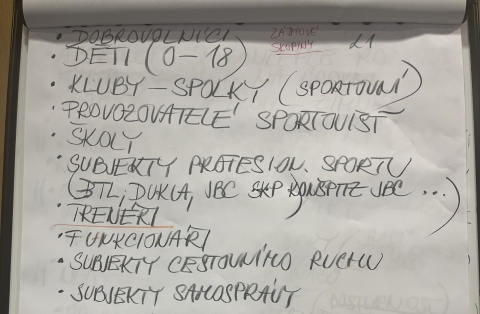 • DOBROVOLNÍCI
ZÁJMOVÉ
SKUPINY
• DĚTI (0 – 18)
• KLUBY – SPOLKY (SPORTOVNÍ)
• PROVOZOVATELÉ SPORTOVIŠŤ
• ŠKOLY
• SUBJEKTY PROFESION. SPORTU
(BTL, DUKLA, JBC SKP JBC ...)
• TRENÉŘI
• FUNKCIONÁŘI
• SUBJEKTY CESTOVNÍHO RUCHU
• SUBJEKTY SAMOSPRÁVY